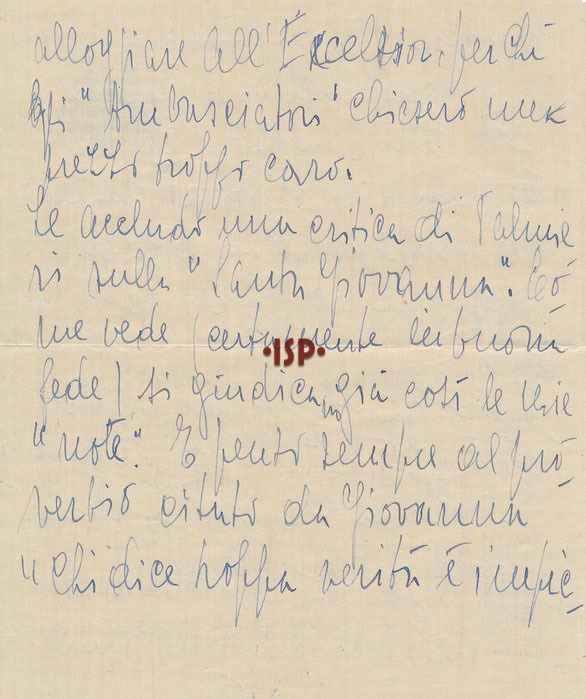 alloggiare all'Excelsior, perchè
gli "Ambasciatori" chiesero un
prezzo troppo caro.
Le accludo una critica di Palmie
ri sulla "Santa Giovanna". Co-
me vede (certamente in buona
fede) si giudicano già così le mie
"note". E penso sempre al pro-
verbio citato da Giovanna
"Chi dice troppa verità è impic-
·ISP·